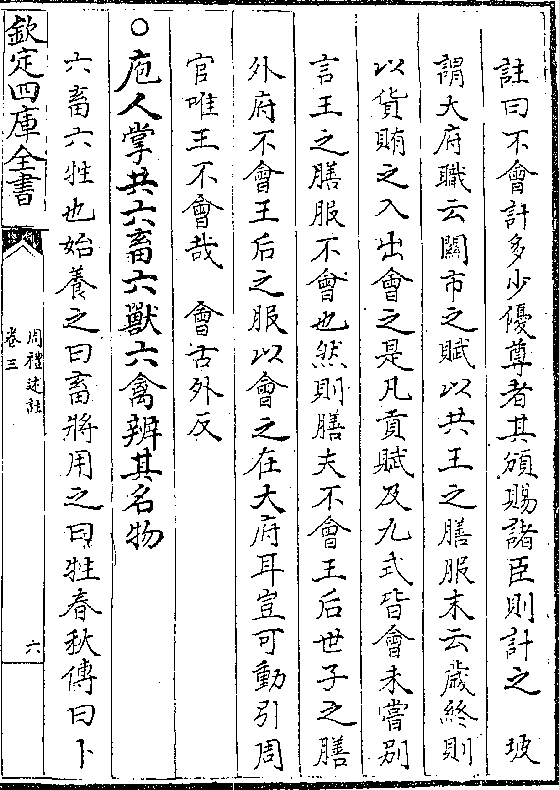 註曰不會計多少優尊者其頒賜諸臣則計之　玻
謂大府職云關市之賦以共王之膳服末云歲終則
以貨賄之入出會之是凡貢賦及九式皆會未嘗别
言王之膳服不會也然則膳夫不會王后世子之膳
外府不會王后之服以會之在大府耳豈可動引周
官唯王不會哉　會古外反
○庖人掌共六畜六獸六禽辨其名物
六畜六牲也始養之曰畜將用之曰牲春秋傳曰卜
欽定四庫全書
周禮述註
卷三
六